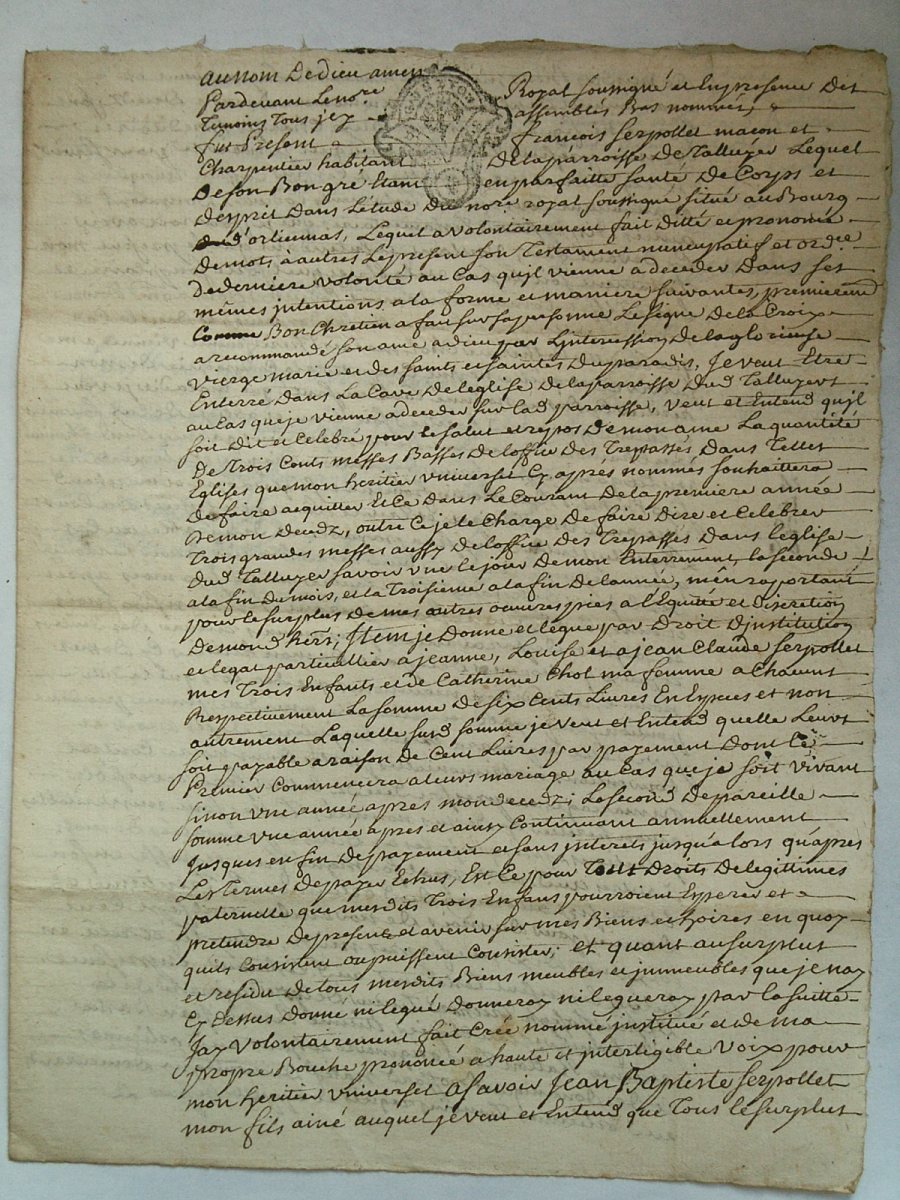 au nom De dieu amen
Pardevant Le no.re Royal soussigné et En presence Des
Temoins Tous jcy assemblés Bas nommes,
fut Present francois Serpollet macon et
Charpentier habitant De la parroisse De Talluyer Lequel
De son Bon gré Etant en parfaitte santé De Corps et
d'esprit Dans L'étude Du no.re royal soussigné situé au Bourg
d'orliennas, Lequel a volontairement fait Ditté et prononcé
De mots a autres Le present son Testament nuncupatif et ord.ce
De derniere volonté au Cas qu'jl vienne a deceder Dans ses
mêmes jntentions a la forme et maniere suivantes, premierem.t
Comme Bon Chretien a fait sur sa personne Le signe De la Croix
a recommandé son ame a dieu par L'jntercession De la glorieuse
vierge marie et des saints et saintes Du paradis, Je veut Etre
Enterré Dans La Cave De l'eglise De la parroisse Dud Talluyers
au Cas que je vienne a deceder sur lad parroisse, veut et Entend qu'jl
soit Dit et Celebré pour le salut et repos De mon ame La quantité
De Trois Cents messes Basses De l'office Des Trepassés, Dans Telles
Eglises que mon heritier vniversel Cy après nommés souhaittera
De faire acquitter Et Ce Dans Le Courant De la premiere année
De mon Decedz, outre Ce je le Charge De faire Dire et Celebrer
Trois grandes messes aussy De l'office Des Trepassés Dans l'eglise
Dud Talluyer savoir vne le jour De mon Enterrement, la seconde
a la fin Du mois, et la Troisieme a la fin De l'année, m'en raportant
pour le surplus De mes autres oeuvres pies a l'Equité et Discretion
De mond hers; Jtem je Donne et legue par Droit D'jnstitution
et legat particullier a jeanne, Louise et a jean Claude Serpollet
mes Trois Enfants et de Catherine Chol ma femme a Chacuns
Respectivement La somme De six Cents Livres En Especes et non
autrement Laquelle susd somme je veut et Entend quelle Leurs
soit payable a raison De Cent Livres par payement Dont Le
Premier Commencera a leurs mariage au Cas que je soit vivant
sinon vne année apres mon decedz; Le second De pareille
somme vne année apres et ainsy Continuant annuellement
Jusques en fin De payement et sans jnterets jusqu'alors qu'apres
Les Termes De payer Echus, Est Ce pour Tous Droits De legittimes
paternelle que mesdits Trois Enfans pourroient Esperer et
pretendre De present et avenir sur mes Biens et hoiries en quoy
quils Consistent ou puissent Consister; et quant au surplus
et residu de tous mesdits Biens meubles et jmmeubles que je nay
Cy Dessus Donné ni legué Donneray ni legueray par la suitte
Jay volontairement fait Crée nommé jnstitué et de ma
propre Bouche prononcée a haute et jntelligible voix pour
mon heritier vniversel a savoir Jean Baptiste Serpollet
mon fils ainé auquel je veut et Entend que Tous le surplus